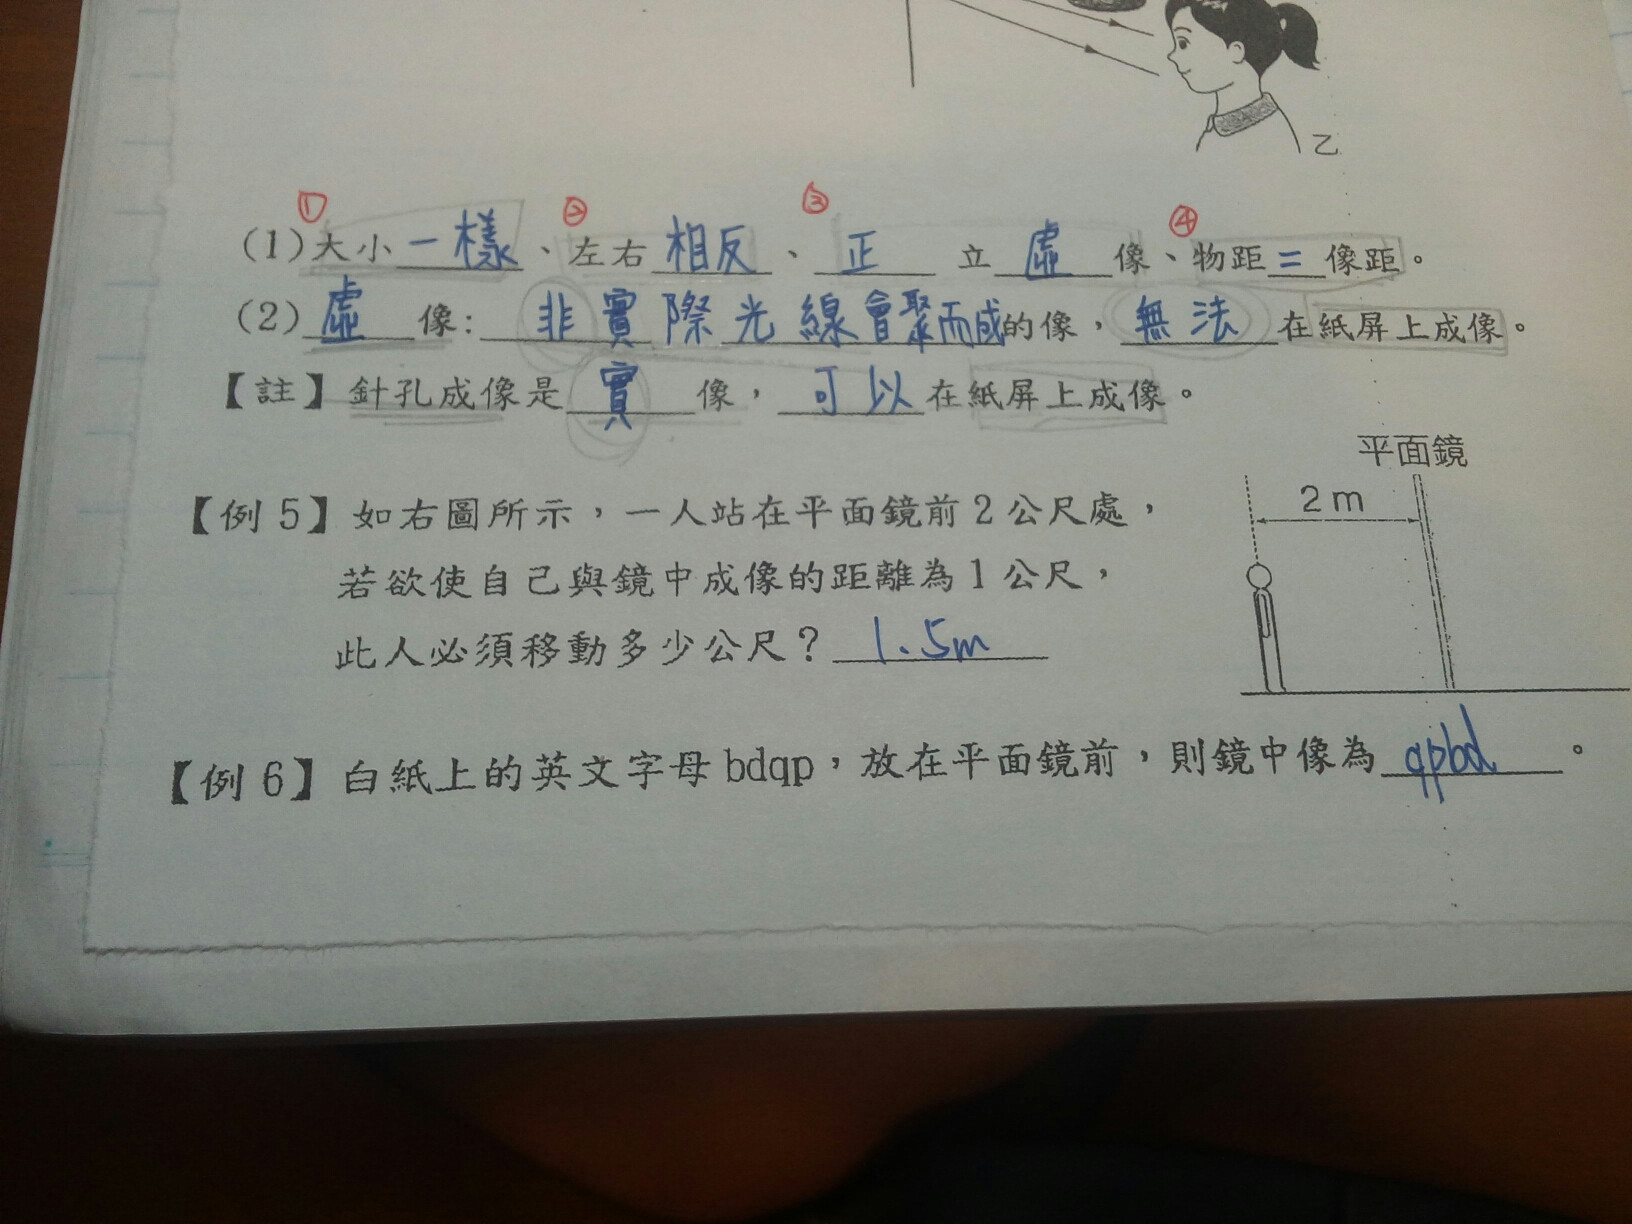 乙
① ② ③ ④
(1)大小一樣、左右相反、正立虛像、物距=像距。
(2)虛像:非實際光線會聚而成的像,無法在紙屏上成像。
【註】針孔成像是實像,可以在紙屏上成像。
平面鏡
2 m
【例 5】如右圖所示,一人站在平面鏡前 2 公尺處,
若欲使自己與鏡中成像的距離為 1 公尺,
此人必須移動多少公尺?1.5m
【例 6】白紙上的英文字母 bdqp,放在平面鏡前,則鏡中像為 qpbd。